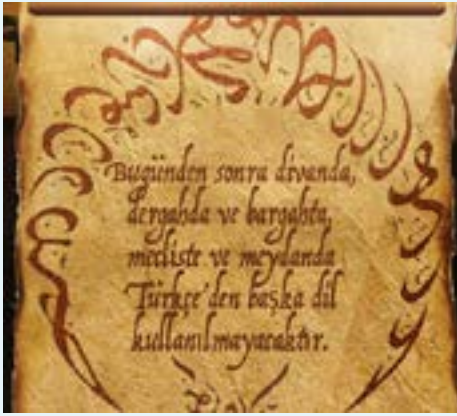 Bugünden sonra divanda,
dergahda ve bargahta,
mecliste ve meydanda
Türkçe'den başka dil
kullanılmayacaktır.